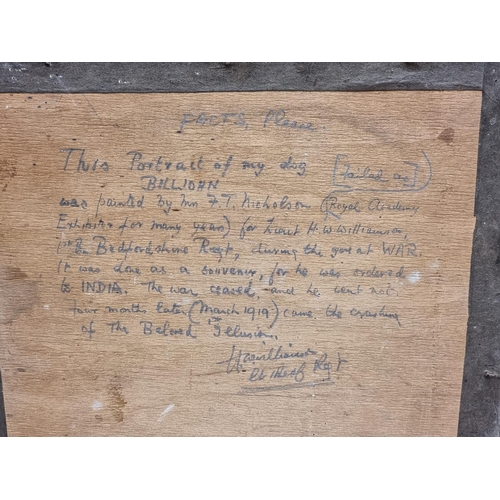 Please.
This Portrait of my dog
BILLJOHN
was painted by Mrs F. T. Nicholson (Royal Academy
Exhibitor for many years) for Lieut H. W. Williamson,
Bedfordshire Regt, during the great WAR.
It was done as a souvenir, for he was ordered
to INDIA. The war ceased, and he went not
four months later (March 1919) came the crashing
of The Beloved Illusion.
HWilliamson
Regt